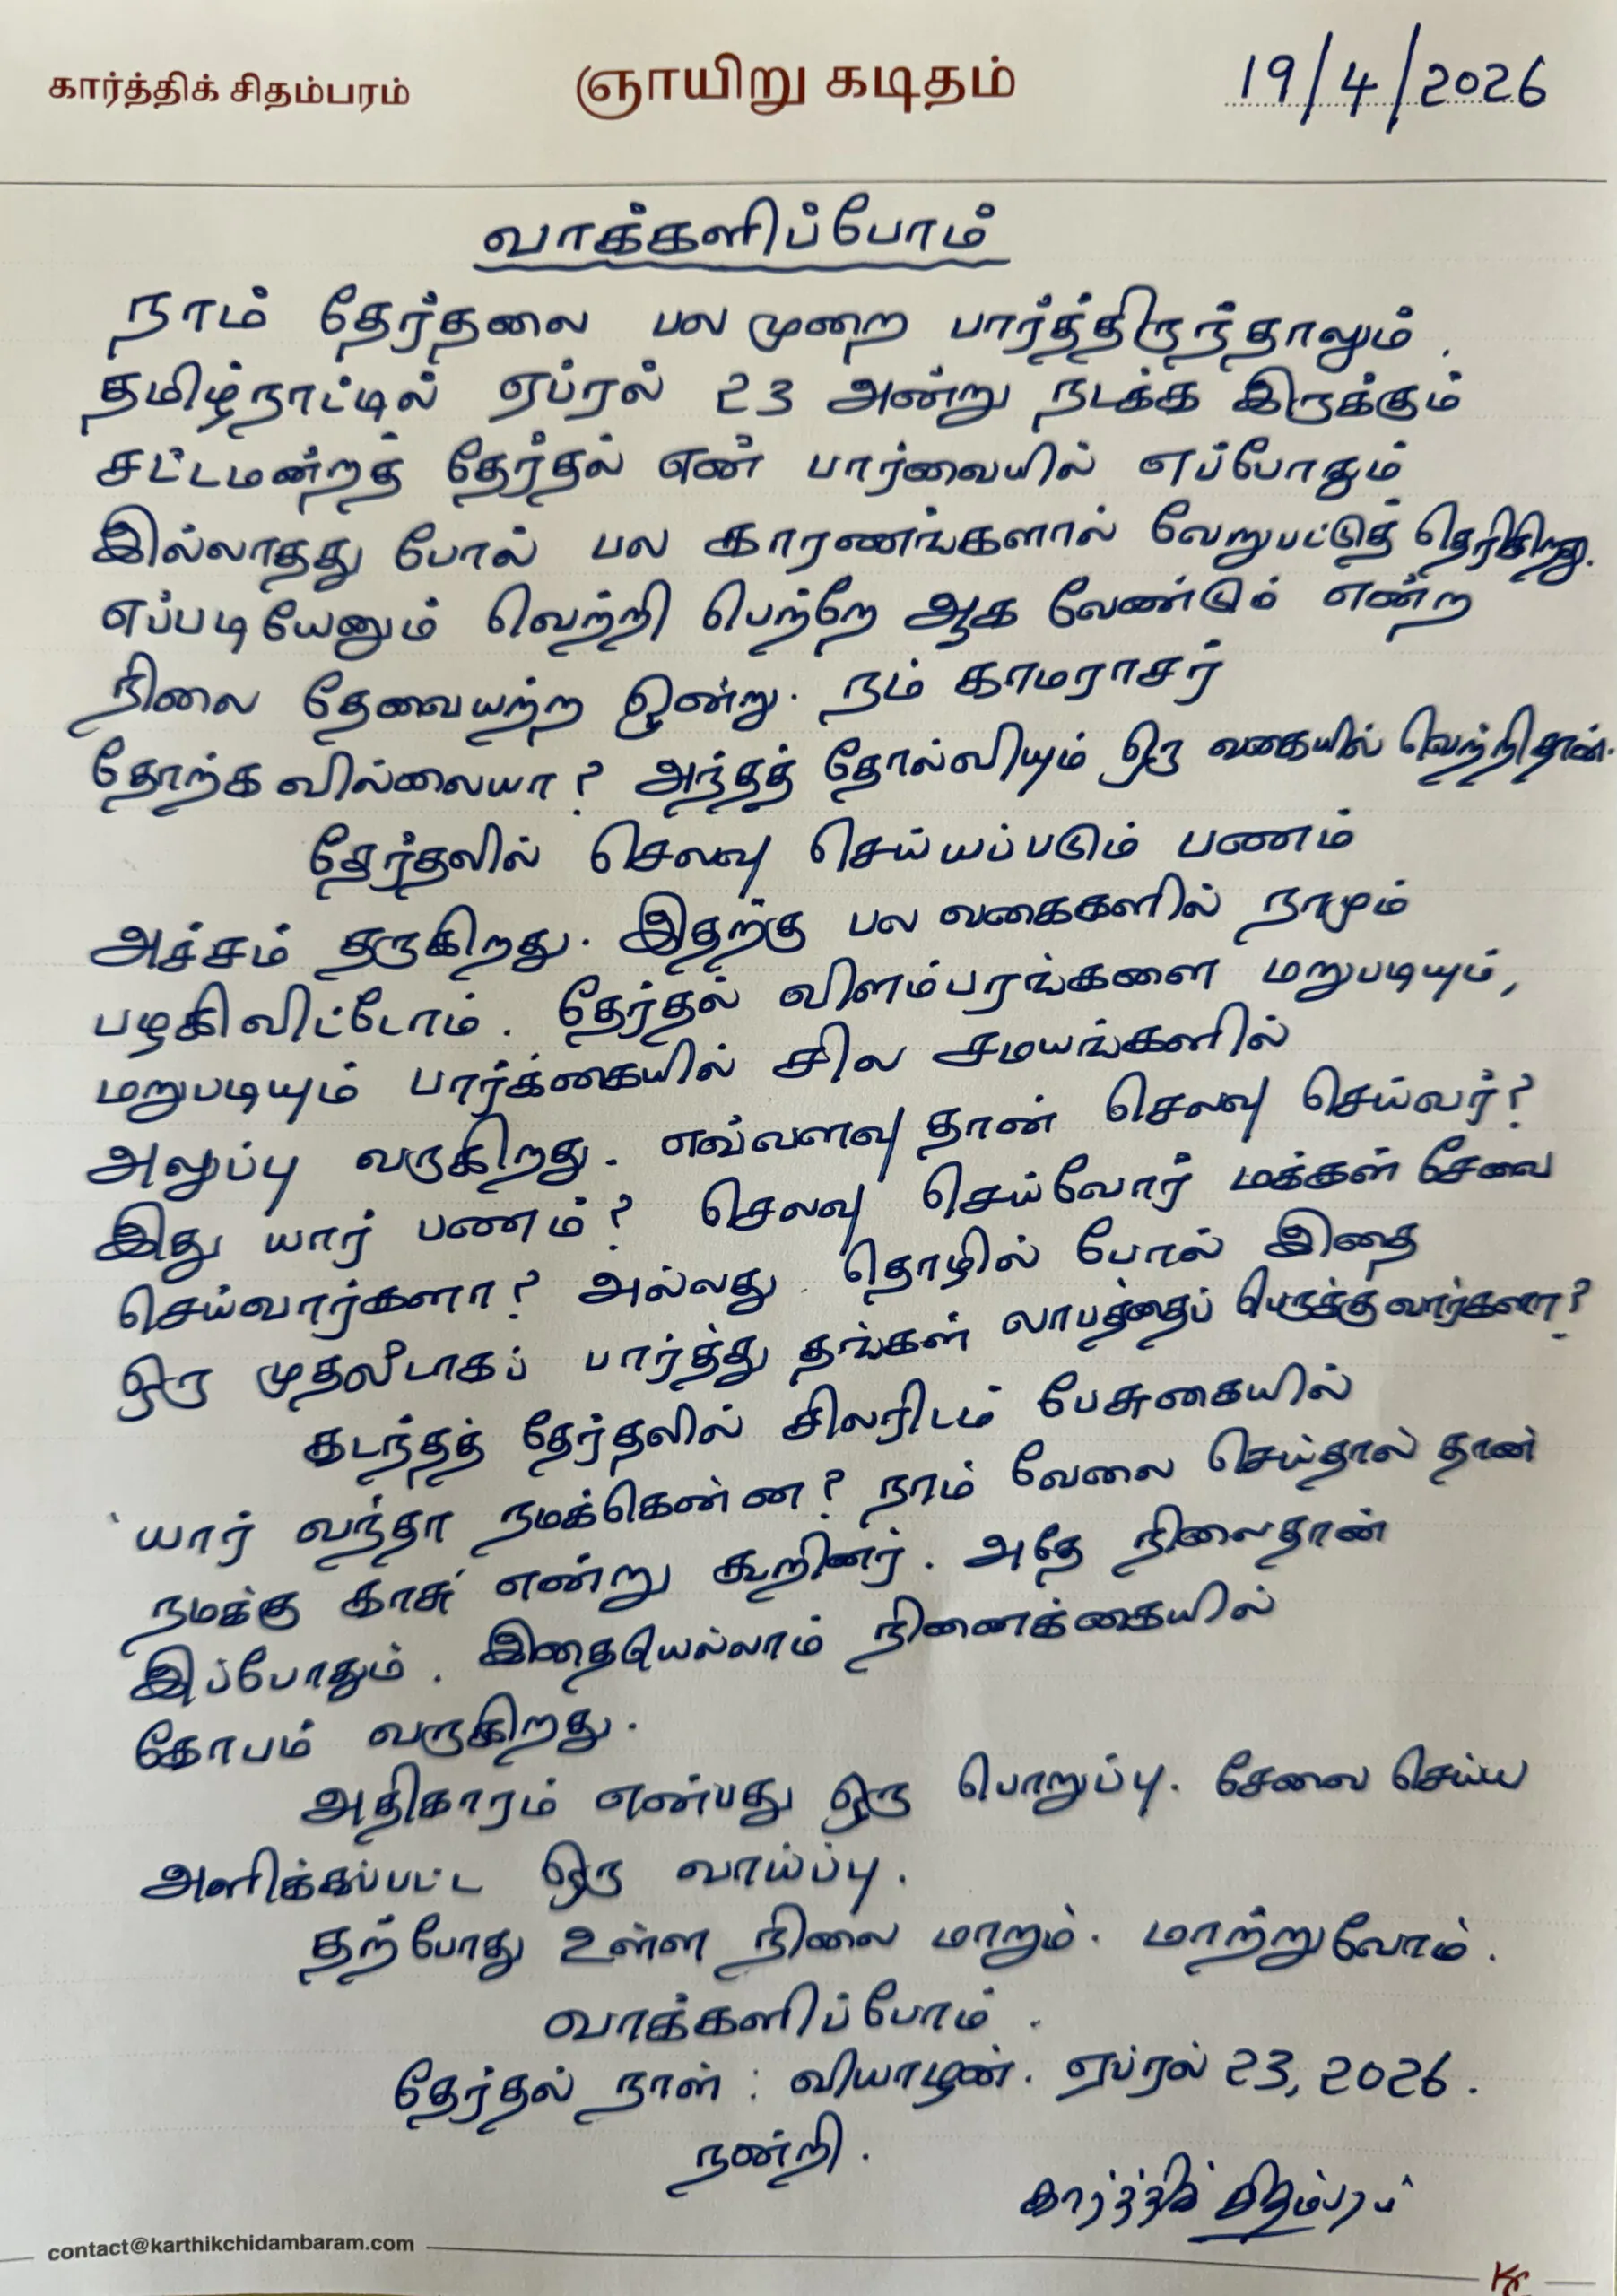 கார்த்திக் சிதம்பரம்
ஞாயிறு கடிதம்
19/4/2026
வாக்களிப்போம்
நாம் தேர்தலை பல முறை பார்த்திருந்தாலும்
தமிழ்நாட்டில் ஏப்ரல் 23 அன்று நடக்க இருக்கும்
சட்டமன்றத் தேர்தல் என் பார்வையில் எப்போதும்
இல்லாதது போல் பல காரணங்களால் வேறுபட்டுத் தெரிகிறது.
எப்படியேனும் வெற்றி பெற்றே ஆக வேண்டும் என்ற
நிலை தேவையற்ற ஒன்று. நம் காமராசர்
தோற்கவில்லையா? அந்தத் தோல்வியும் ஒரு வகையில் வெற்றிதான்.
தேர்தலில் செலவு செய்யப்படும் பணம்
அச்சம் தருகிறது. இதற்கு பல வகைகளில் நாமும்
பழகிவிட்டோம். தேர்தல் விளம்பரங்களை மறுபடியும்,
மறுபடியும் பார்க்கையில் சில சமயங்களில்
அலுப்பு வருகிறது. எவ்வளவு தான் செலவு செய்வர்?
இது யார் பணம்? செலவு செய்வோர் மக்கள் சேவை
செய்வார்களா? அல்லது தொழில் போல் இதை
ஒரு முதலீடாகப் பார்த்து தங்கள் லாபத்தைப் பெருக்குவார்களா?
கடந்தத் தேர்தலில் சிலரிடம் பேசுகையில்
'யார் வந்தா நமக்கென்ன? நாம் வேலை செய்தால் தான்
நமக்கு காசு' என்று கூறினர். அதே நிலைதான்
இப்போதும். இதையெல்லாம் நினைக்கையில்
கோபம் வருகிறது.
அதிகாரம் என்பது ஒரு பொறுப்பு. சேவை செய்ய
அளிக்கப்பட்ட ஒரு வாய்ப்பு.
தற்போது உள்ள நிலை மாறும். மாற்றுவோம்.
வாக்களிப்போம்.
தேர்தல் நாள் : வியாழன். ஏப்ரல் 23, 2026.
நன்றி.
கார்த்திக் சிதம்பரம்
contact@karthikchidambaram.com
KC